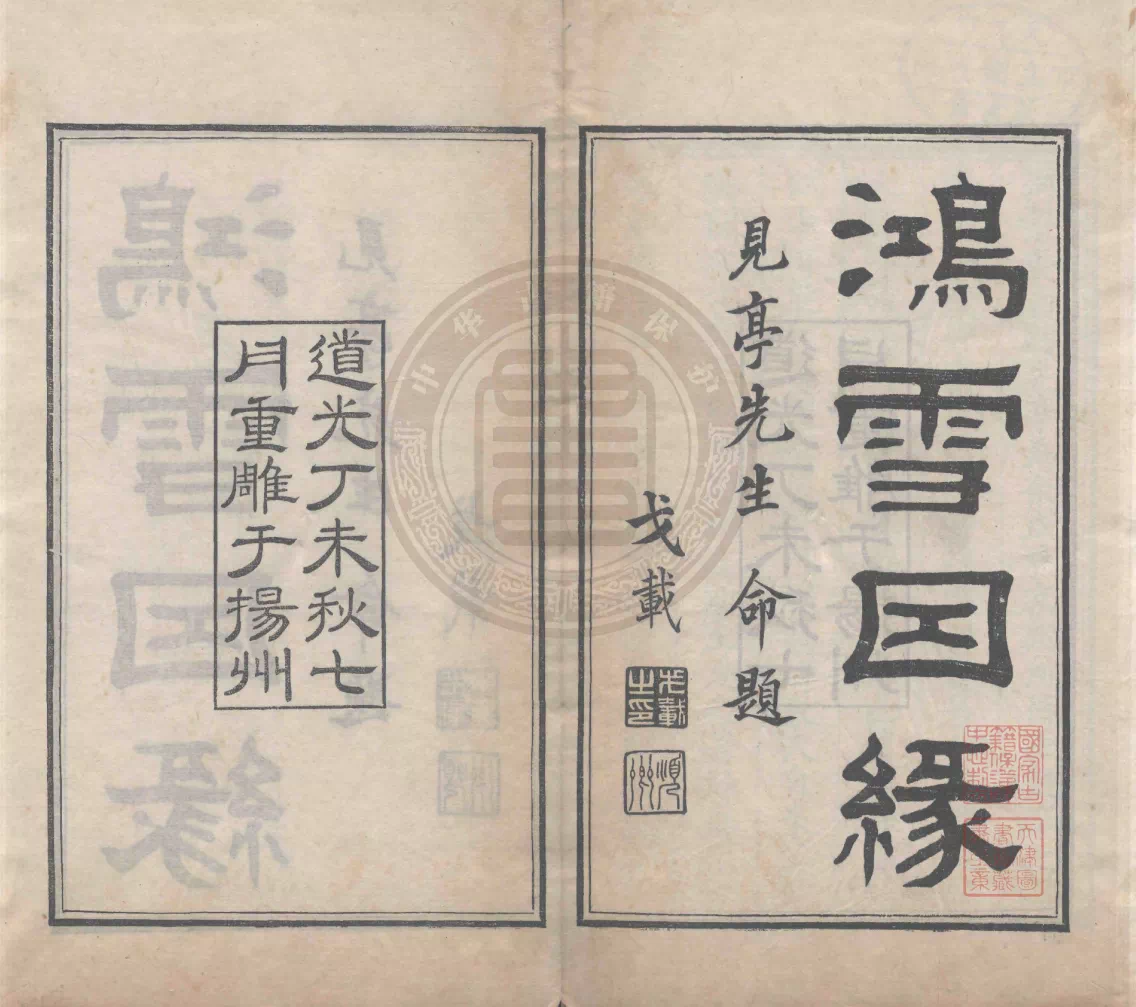 鴻雪因緣
見亭先生命題
戈載
戈載之印
順卿
道光丁未秋七
月重雕于揚州